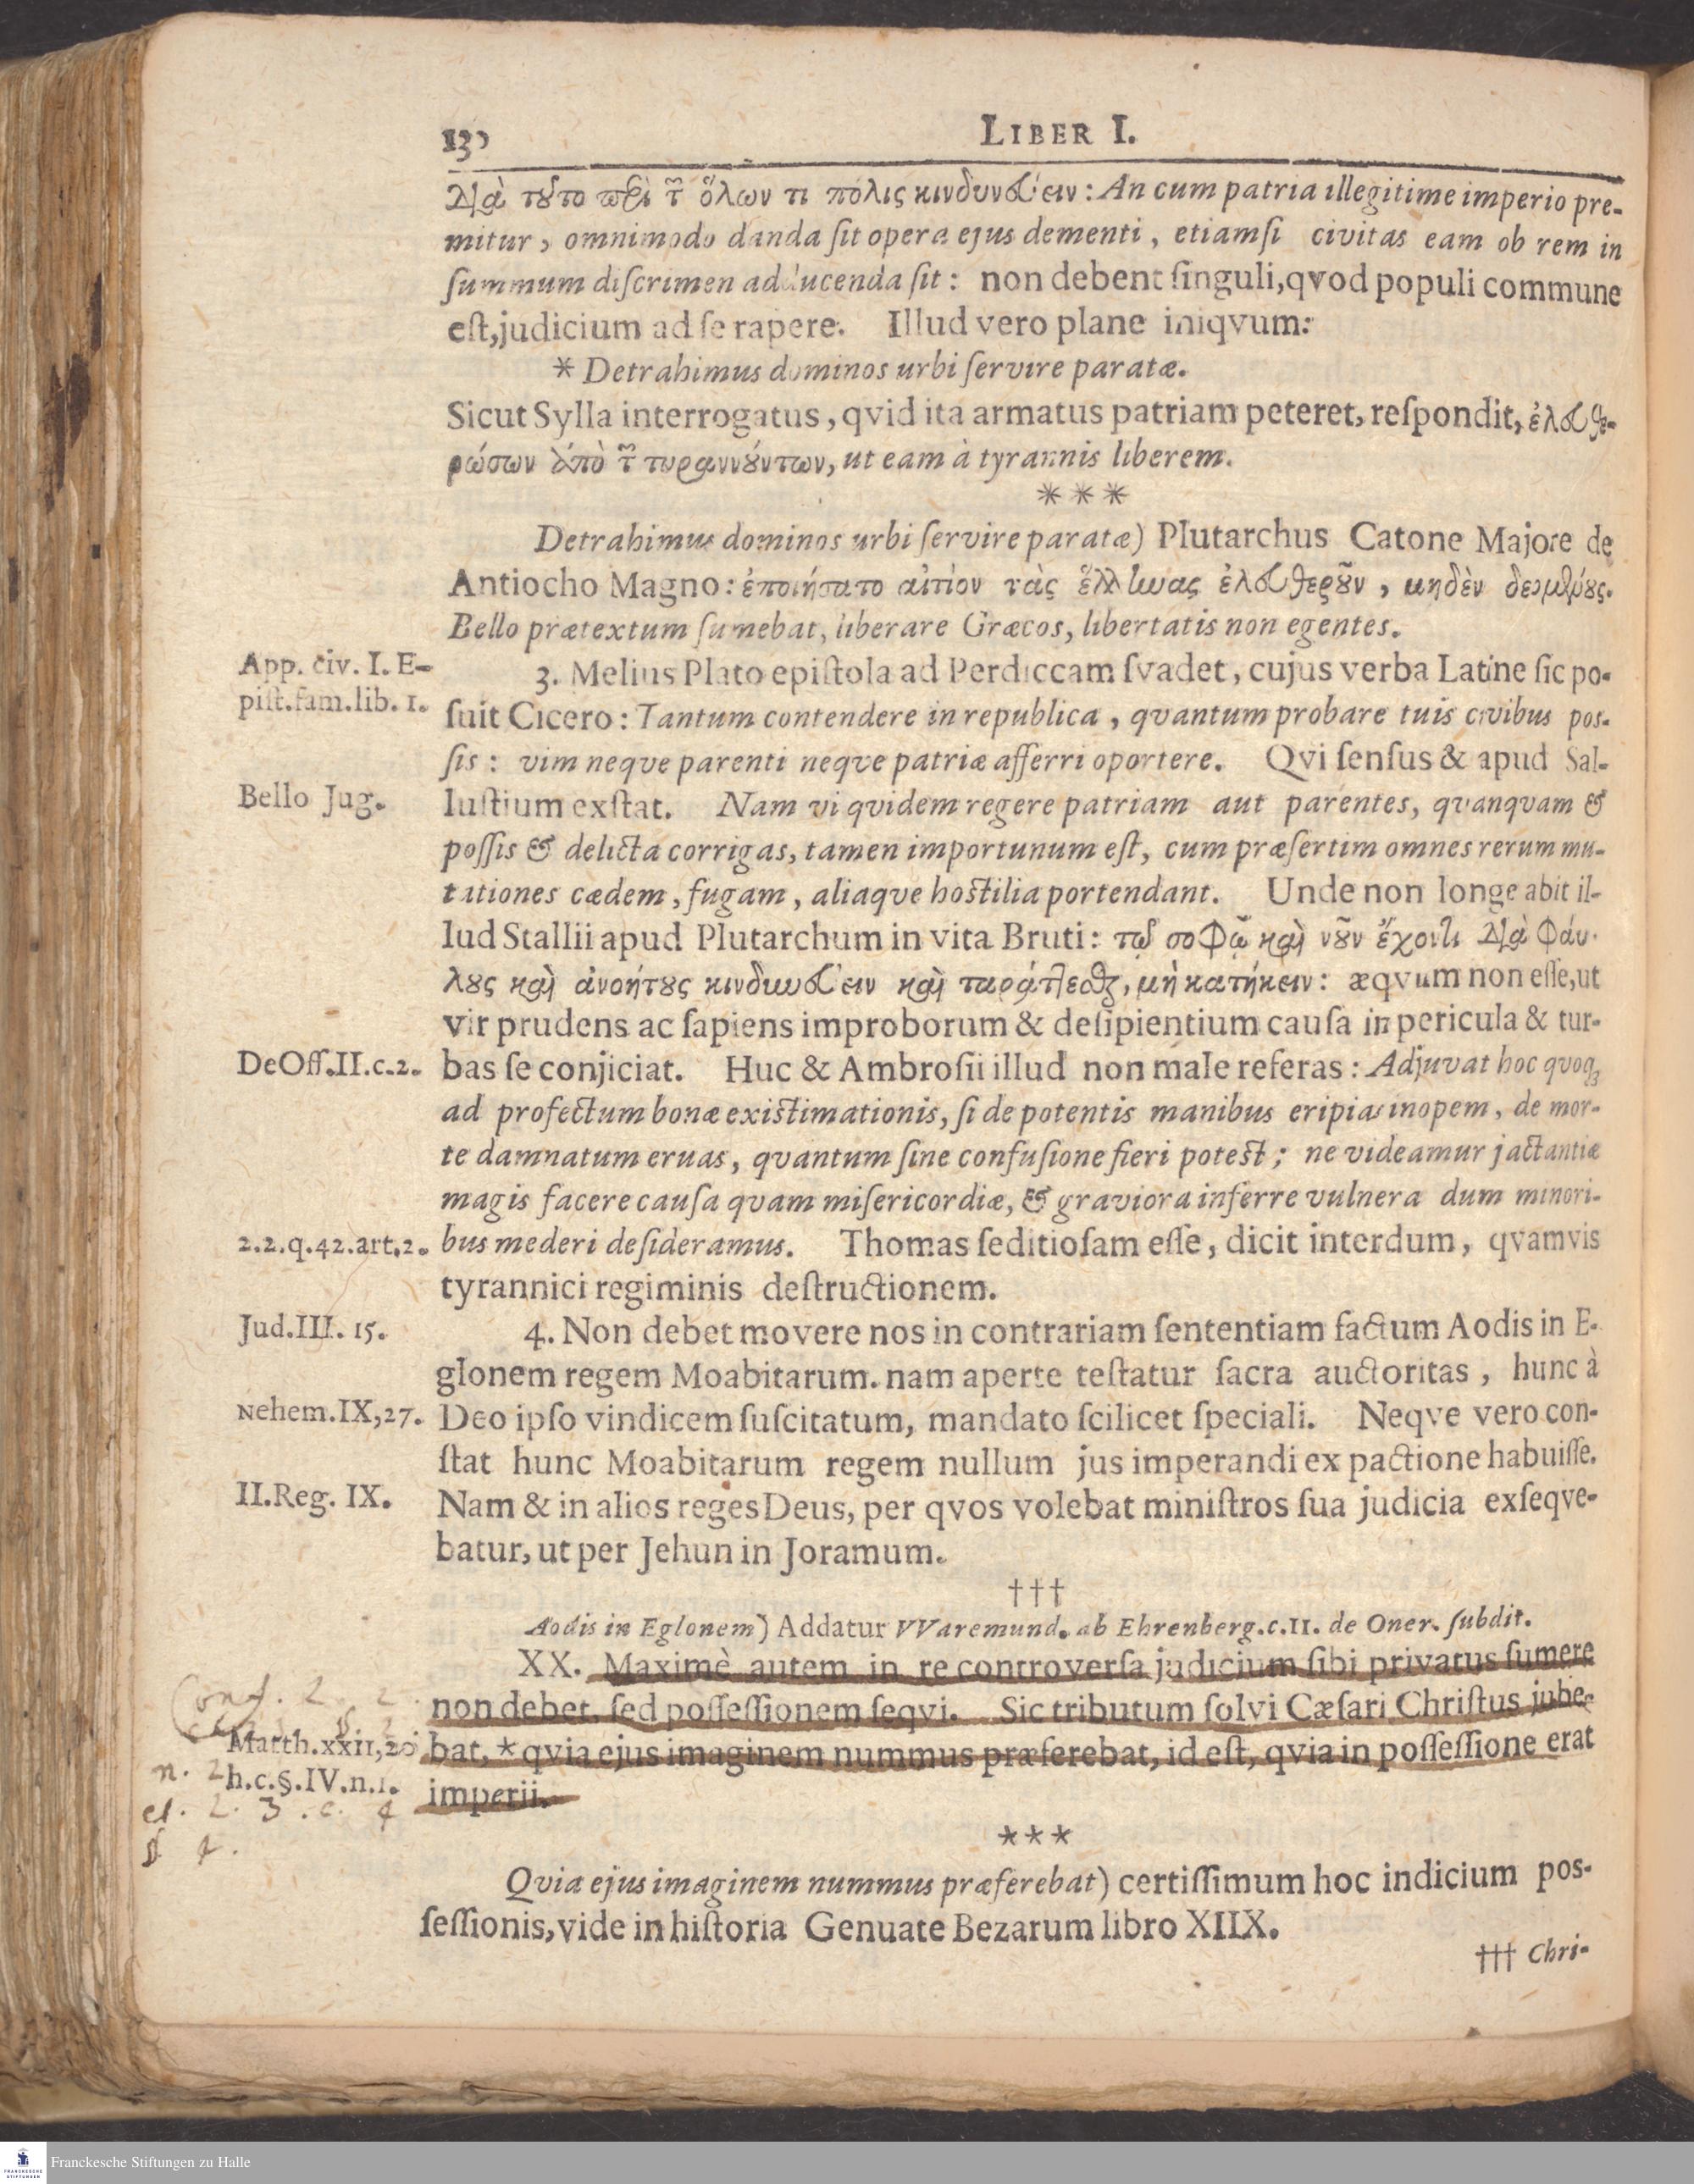 130 LIBER I.
διὰ τοῦτο περὶ τῶν ὅλων τι πόλις κινδυνεύειν: An cum patria illegitime imperio pre-
mitur, omnimodo danda ſit opera ejus dementi, etiamſi civitas eam ob rem in
ſummum diſcrimen adducenda ſit: non debent ſinguli, qvod populi commune
eſt, judicium ad ſe rapere. Illud vero plane iniqvum:
* Detrahimus dominos urbi ſervire paratæ.
Sicut Sylla interrogatus, qvid ita armatus patriam peteret, reſpondit, ἐλευθε-
ρώσων ἀπὸ τῶν τυραννούντων, ut eam à tyrannis liberem.
* * *
Detrahimus dominos urbi ſervire paratæ) Plutarchus Catone Majore de
Antiocho Magno: ἐποιήσατο αἰτίον τὰς ἕλληνας ἐλευθεροῦν, μηδὲν δεομένους.
Bello prætextum ſumebat, liberare Græcos, libertatis non egentes.
App. civ. I. E-
piſt. fam. lib. 1.
3. Melius Plato epiſtola ad Perdiccam ſvadet, cujus verba Latine ſic po-
ſuit Cicero: Tantum contendere in republica, qvantum probare tuis civibus pos-
ſis: vim neqve parenti neqve patriæ afferri oportere. Qvi ſenſus & apud Sal-
Bello Jug.
luſtium exſtat. Nam vi qvidem regere patriam aut parentes, qvanqvam &
poſſis & delicta corrigas, tamen importunum eſt, cum præſertim omnes rerum mu-
tationes cædem, fugam, aliaqve hoſtilia portendant. Unde non longe abit il-
lud Stallii apud Plutarchum in vita Bruti: τῷ σοφῷ καὶ νοῦν ἔχοντι διὰ φάυ-
λους καὶ ἀνοήτους κινδυνεύειν καὶ ταράττεσθαι, μὴ κατήκειν: æqvum non eſſe, ut
vir prudens ac ſapiens improborum & deſipientium cauſa in pericula & tur-
De Off. II. c. 2.
bas ſe conjiciat. Huc & Ambroſii illud non male referas: Adjuvat hoc qvoqꝫ
ad profectum bonæ exiſtimationis, ſi de potentis manibus eripias inopem, de mor-
te damnatum eruas, qvantum ſine confuſione fieri poteſt; ne videamur jactantiæ
magis facere cauſa qvam miſericordiæ, & graviora inferre vulnera dum minori-
2.2.q.42.art.2.
bus mederi deſideramus. Thomas ſeditioſam eſſe, dicit interdum, qvamvis
tyrannici regiminis deſtructionem.
Jud. III. 15.
4. Non debet movere nos in contrariam ſententiam factum Aodis in E-
glonem regem Moabitarum. nam aperte teſtatur ſacra auctoritas, hunc à
Nehem. IX, 27.
Deo ipſo vindicem ſuſcitatum, mandato ſcilicet ſpeciali. Neqve vero con-
ſtat hunc Moabitarum regem nullum jus imperandi ex pactione habuiſſe.
II. Reg. IX.
Nam & in alios reges Deus, per qvos volebat miniſtros ſua judicia exſeqve-
batur, ut per Jehun in Joramum.
†††
Aodis in Eglonem) Addatur VVaremund. ab Ehrenberg. c. II. de Oner. ſubdit.
XX. Maximè autem in re controverſa judicium ſibi privatus ſumere
non debet, ſed poſſeſſionem ſeqvi. Sic tributum ſolvi Cæſari Chriſtus jube-
Conf. 2. 2.
Matth. xxii, 20
bat, * qvia ejus imaginem nummus præferebat, id eſt, qvia in poſſeſſione erat
n. 2
h.c.§.IV.n.1.
imperii.
et. 2. 3. c. 4
§ 4.
* * *
Qvia ejus imaginem nummus præferebat) certiſſimum hoc indicium pos-
ſeſſionis, vide in hiſtoria Genuate Bezarum libro XIIX.
††† Chri-
Franckesche Stiftungen zu Halle
FRANCKESCHE
STIFTUNGEN